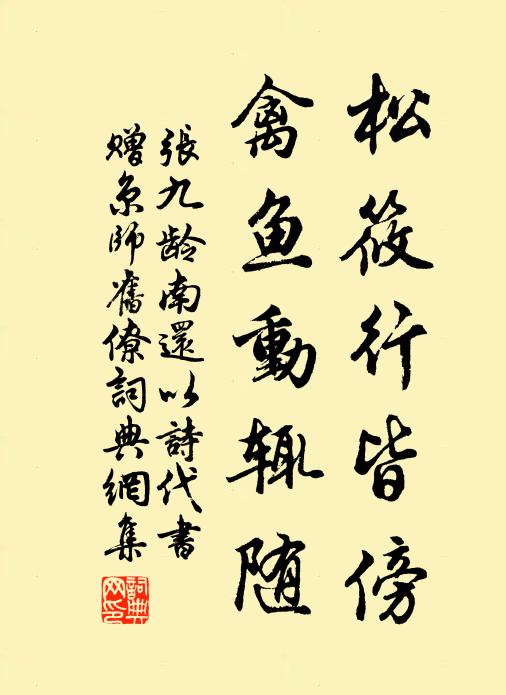 松筱行皆傍
禽鱼動辄随
張九龄南還以詩代書
赠京師舊僚詞典網集
詞典网印